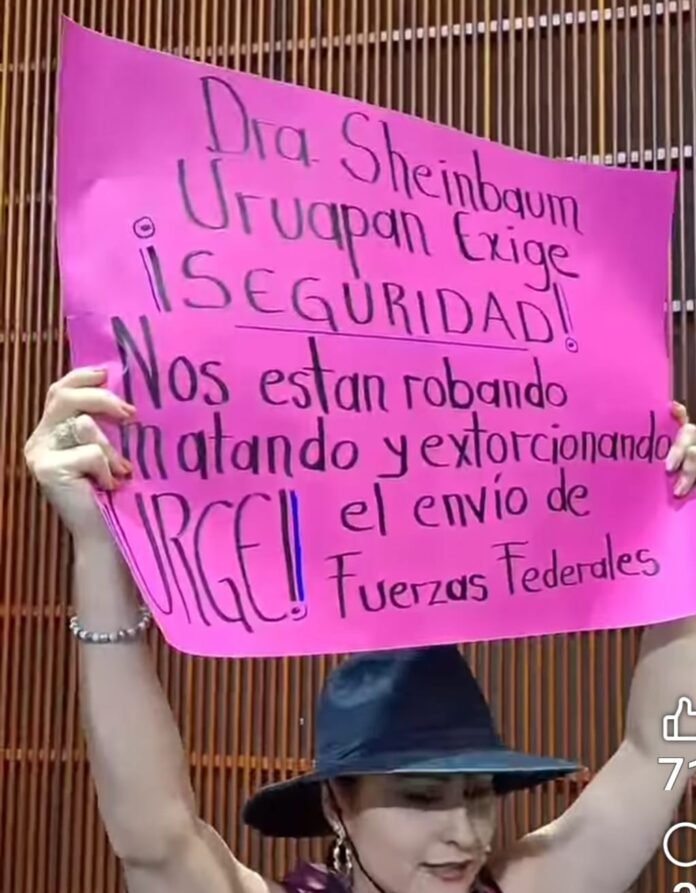 Dra. Sheinbaum
Uruapan Exige
¡SEGURIDAD!
Nos estan robando
matando y extorcionando
URGE!! el envío de
Fuerzas Federales
71